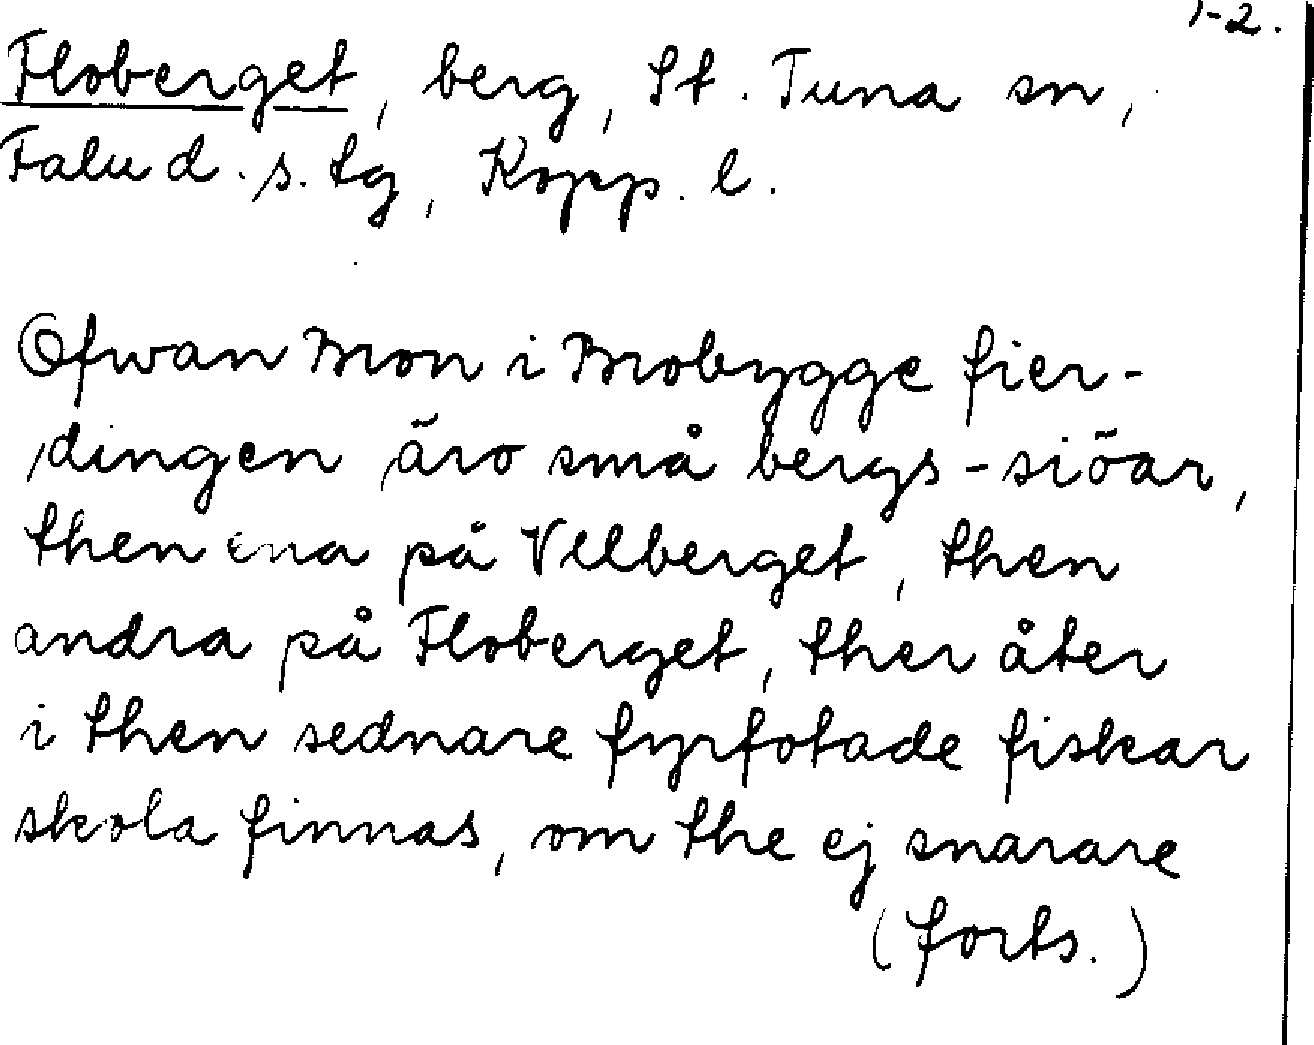 1-2.
Floberget, berg, St. Tuna sn,
Falu d. s. tg, Kopp. l.
Ofwan Mon i Mobygge fier-
dingen äro små bergs-siöar,
then ena på Vllberget, then
andra på Floberget, ther åter
i then sednare fyrfotade fiskar
skola finnas, om the ej snarare
(forts.)